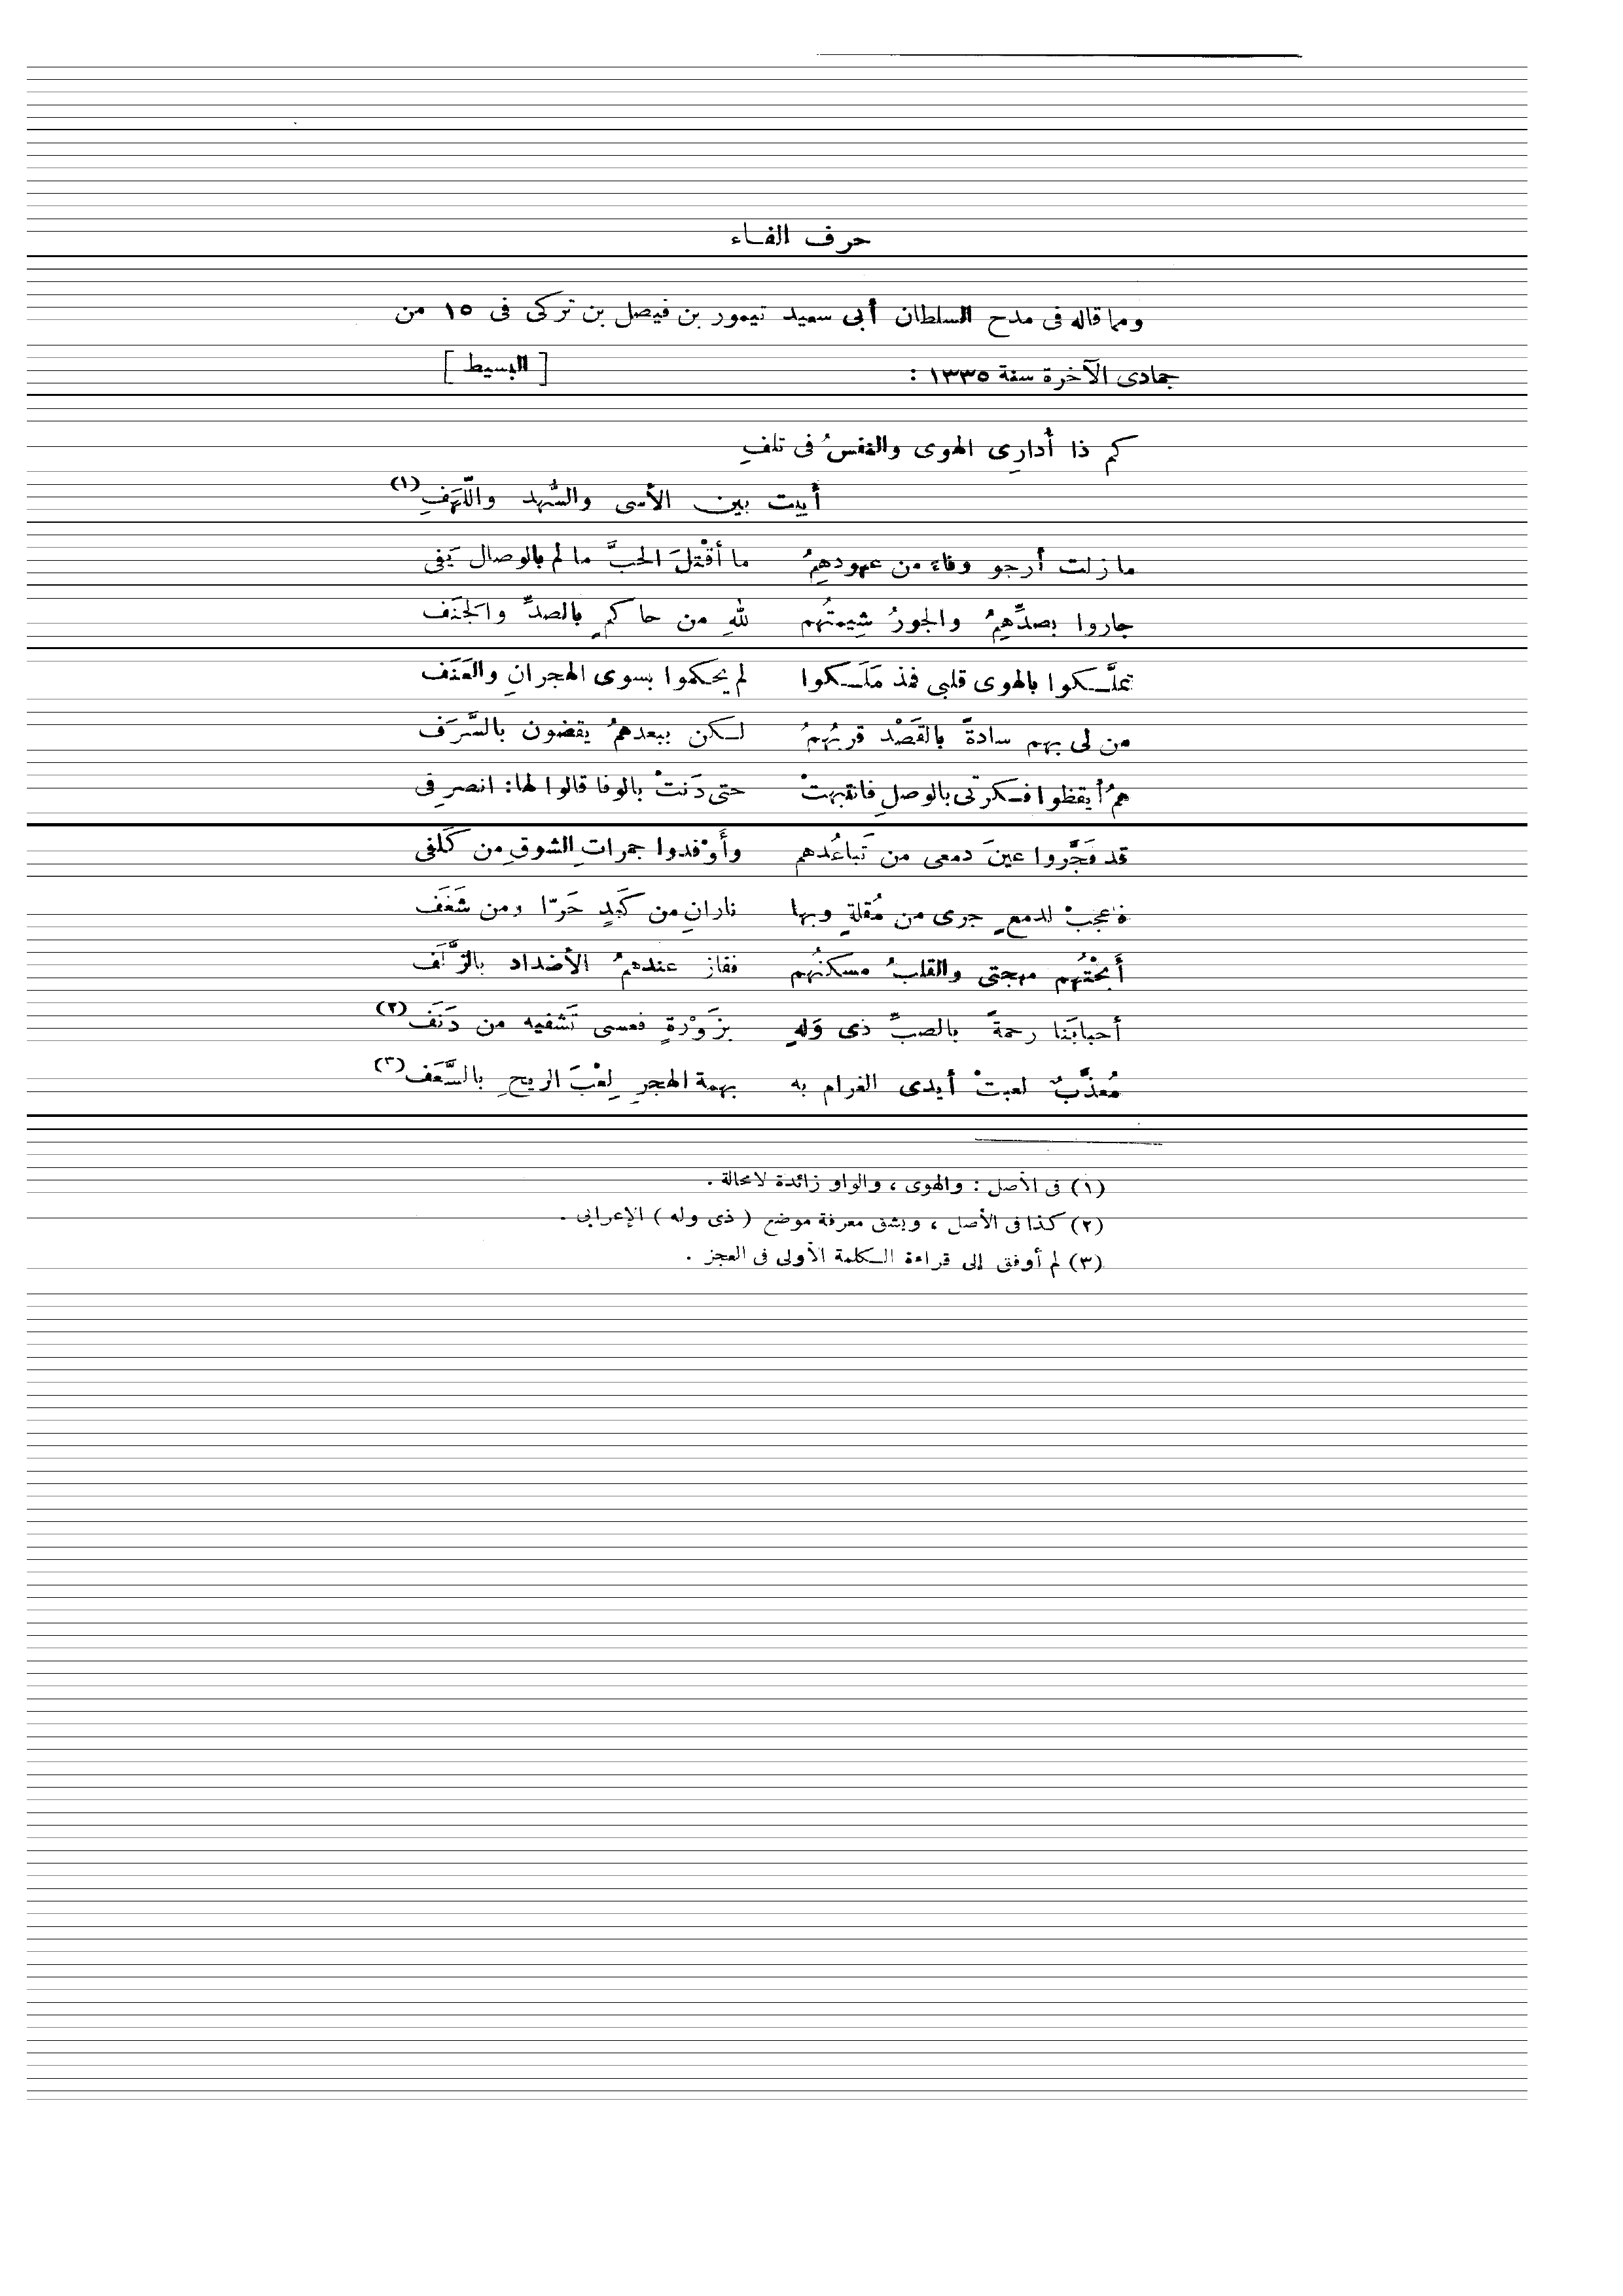 حرف الفاء
ومما قاله فى مدح السلطان أبى سعيد تيمور بن فيصل بن تركى فى ١٥ من
جمادى الآخرة سنة ١٣٣٥ : [ البسيط ]
كم ذا أُدارِى الهوى والنفسُ فى تلفِ
أبيت بين الأسى والسُّهد واللَّهَفِ (١)
ما زلت أرجو وفاءً من عهودهِمُ ما أقْتلَ الحبَّ ما لم بالوصال يَفى
جاروا بصدِّهِمُ والجورُ شِيمتُهم للهِ من حاكمٍ بالصدِّ والجَنَف
تملَّكوا بالهوى قلبى فمذ مَلَكوا لم يحكموا بسوى الهجرانِ والعَنَف
من لى بهم سادةً بالقَصْد قربُهمُ لكن ببعدهمُ يقضون بالسَّرَف
همُ أيقظوا فكرتى بالوصلِ فانتبهتْ حتى دَنتْ بالوفا قالوا لها: انصرِفى
قد فَجَّروا عينَ دمعى من تَباعُدهم وأَوْقدوا جمراتِ الشوقِ من كَلَفى
فاعجبْ لدمعٍ جرى من مُقلةٍ وبها نارانِ من كَبَدٍ حَرّا ومن شَغَف
أَبحْتُهم مهجتى والقلبُ مسكنُهم ففاز عندهمُ الأضداد بالزُّلَف
أحبابَنا رحمةً بالصبِّ ذى وَلهٍ بزَوْرةٍ فعسى تَشفيه من دَنَف (٢)
مُعذَّبٌ لعبتْ أيدى الغرام به بهمة الهجرِ لِعْبَ الريحِ بالسَّعَف (٣)
(١) فى الأصل : والهوى ، والواو زائدة لا محالة .
(٢) كذا فى الأصل ، ويشق معرفة موضع ( ذى وله ) الإعرابى .
(٣) لم أوفق إلى قراءة الكلمة الأولى فى العجز .